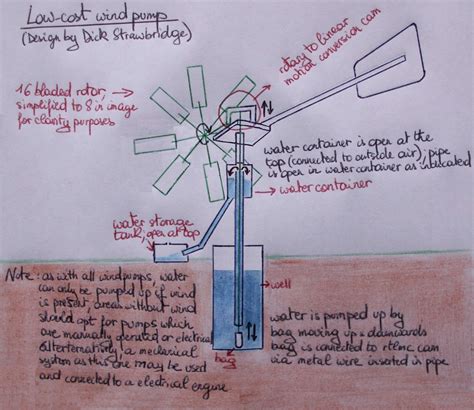 Low-cost wind pump
(Design by Dick Strawbridge)
rotary to linear
motion conversion cam
16 bladed rotor,
simplified to 8 in image
for clarity purposes
water container is open at the
top (connected to outside air), pipe
is open in water container as indicated
water container
water storage
tank, open at top
Note: as with all windpumps, water
can only be pumped up if wind
is present, areas without wind
should opt for pumps which
are manually operated or electrical
Alternatively, a mechanical
system as this one may be used
and connected to a electrical engine
well
water is pumped up by
bag moving up & downwards
bag is connected to rtlmc cam
via metal wire inserted in pipe
bag